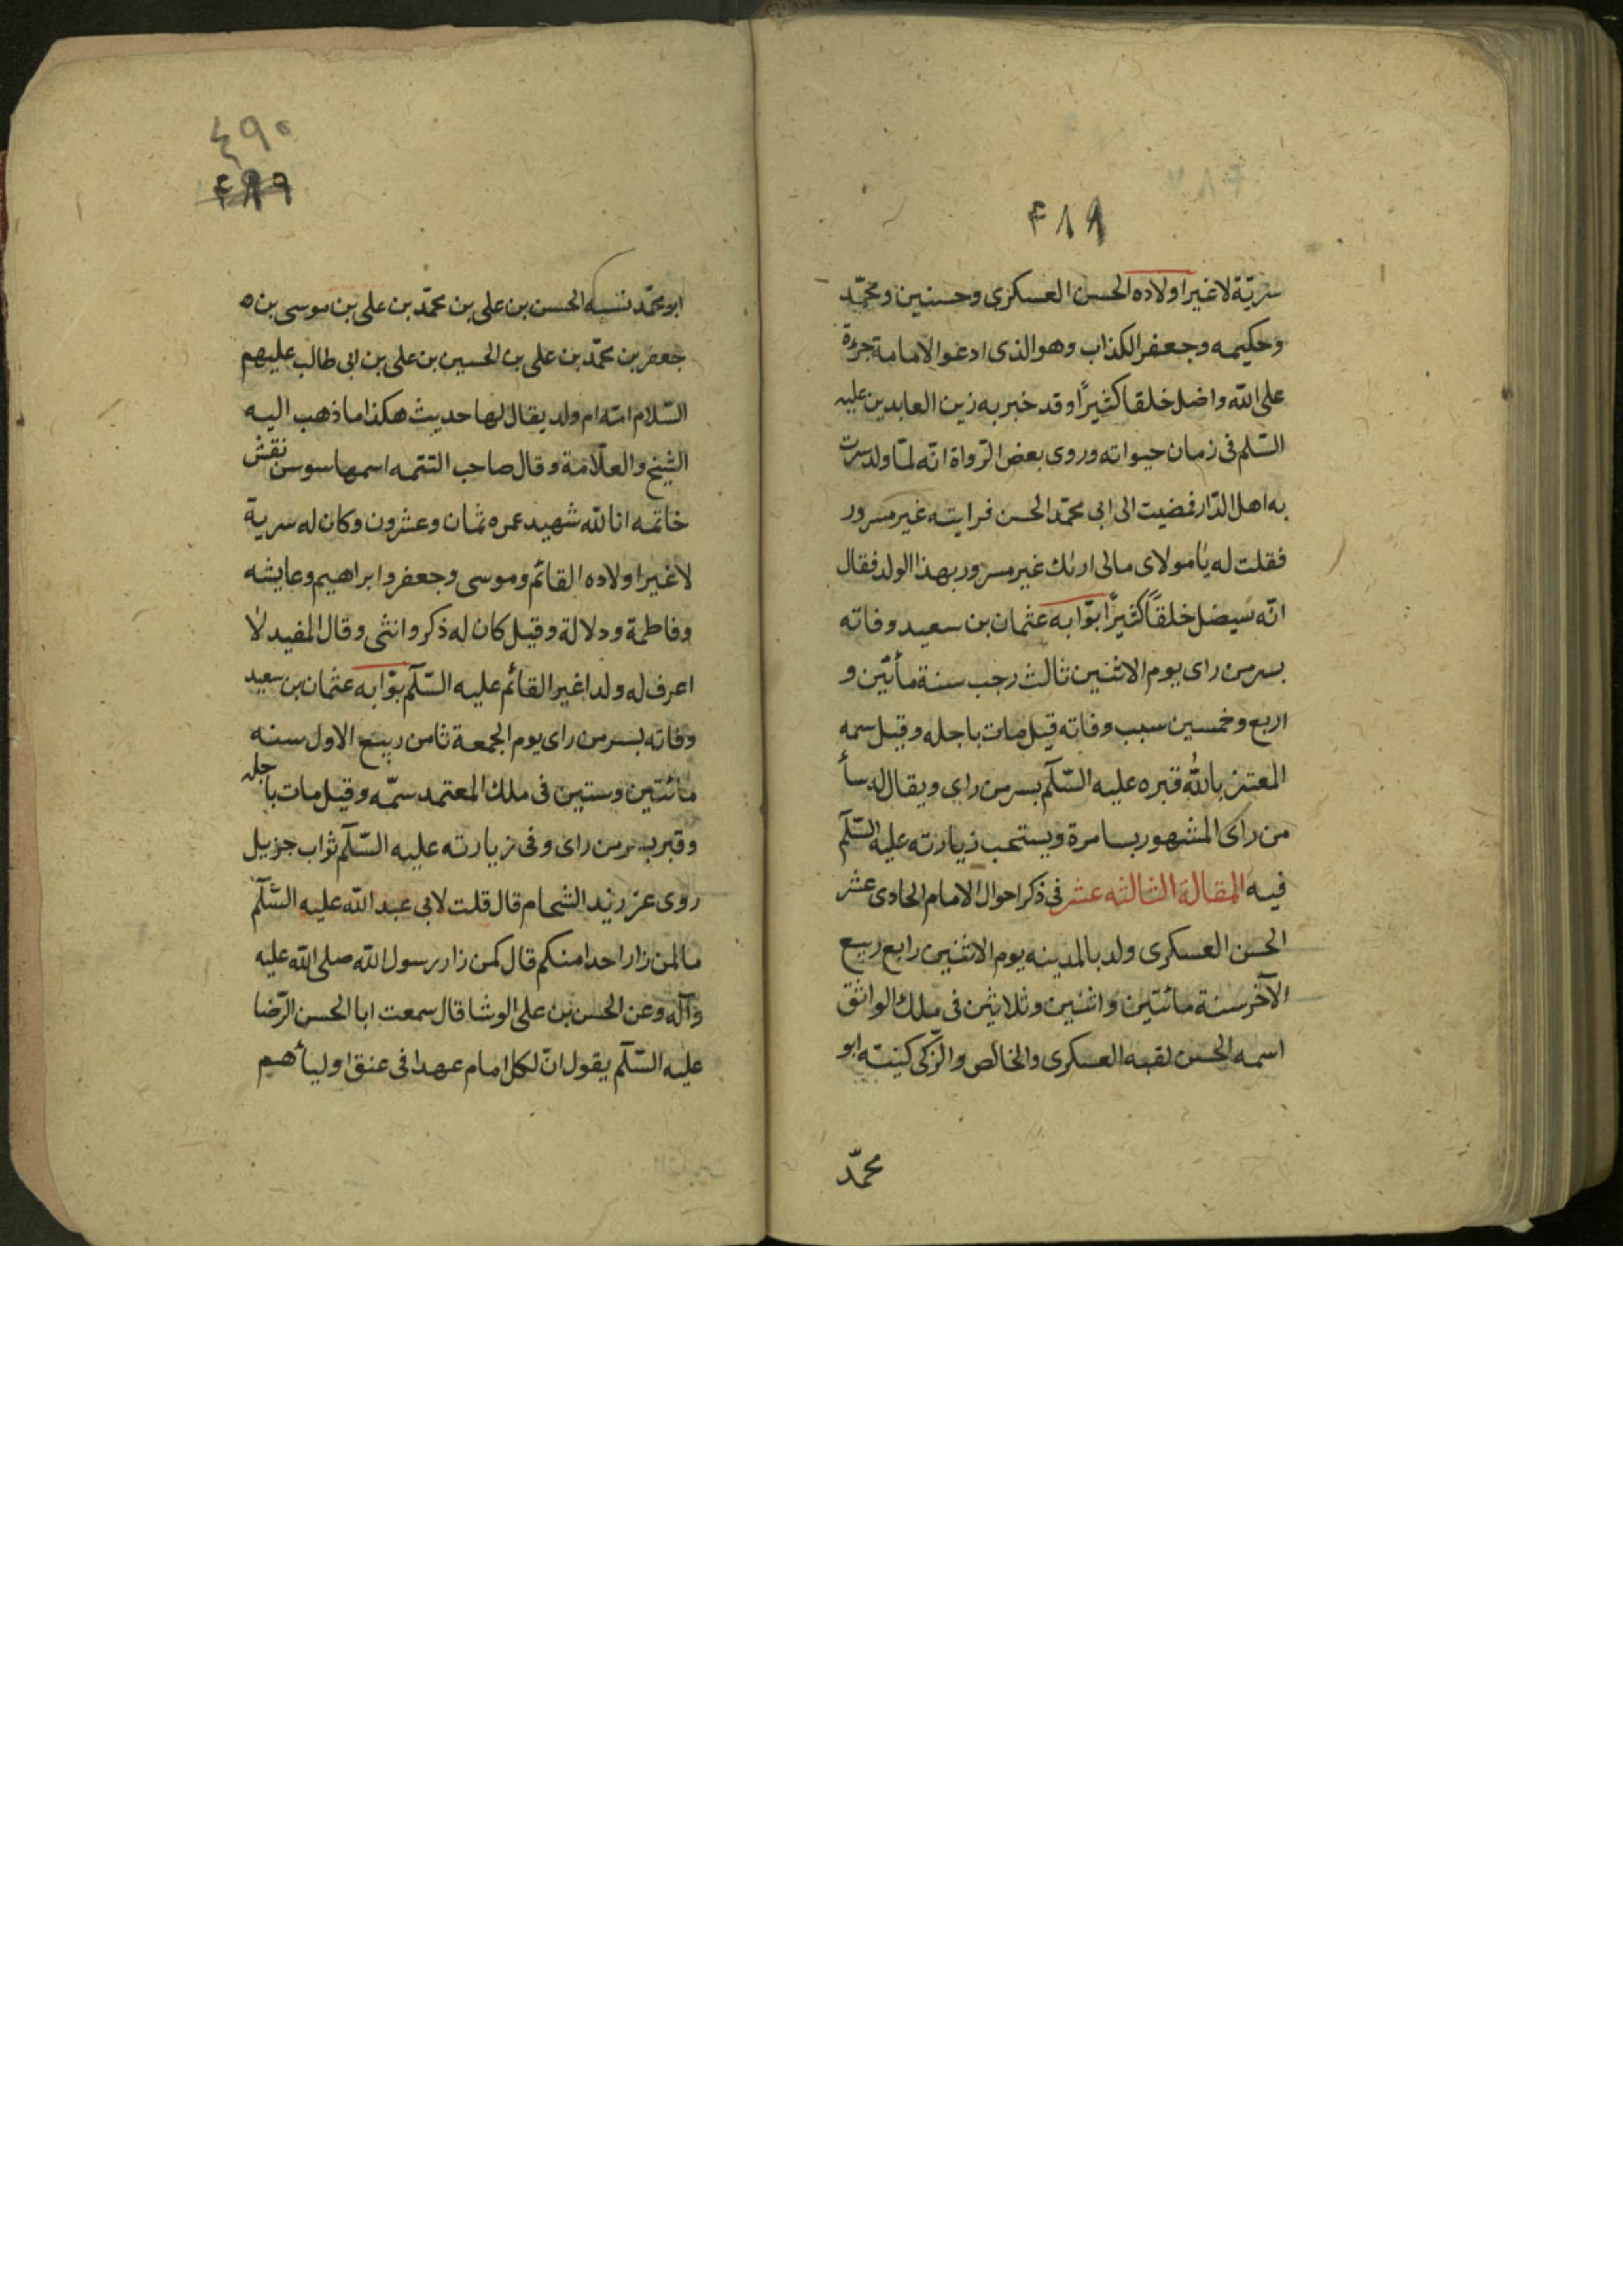 ۴۸۹
سريّة لا غير اولاده الحسن العسكرى وحسنين ومحمّد
وحكيمه وجعفر الكذاب وهو الذى ادعو الامامة جرءة
على الله واضل خلقا كثيرًا وقد خبر به زين العابدين عليه
السّلم فى زمان حيواته وروى بعض الرّواة انّه لمّا ولد سرت
به اهل الدّار فضيت الى ابى محمّد الحسن فرايته غير مسرور
فقلت له يا مولاى مالى ارئك غير مسرور بهذا الولد فقال
انّه سيضل خلقًا كثيرًا بوّابه عثمان بن سعيد وفاته
بسر من راى يوم الاثنين ثالث رجب سنة مأتين و
اربع وخمسين سبب وفاته قيل مات باجله وقيل سمه
المعتز بالله قبره عليه السّلم بسر من راى ويقال له سأ
من راى المشهور بسامرة ويستحب زيارته عليه السّلم
فيه المقالة الثالثه عشر فى ذكر احوال الامام الحادى عشر
الحسن العسكرى ولد بالمدينه يوم الاثنين رابع ربيع
الآخر سنة مائتين واثنين وثلاثين فى ملك الواثق
اسمه الحسن لقبه العسكرى والخالص والزّكى كنيته ابو
محمّد
٤٩٠
۴۸۹
ابو محمّد نسبه الحسن بن على بن محمّد بن على بن موسى بن
جعفر بن محمّد بن على بن الحسين بن على بن ابى طالب عليهم
السّلام امّه ام ولد يقال لها حديث هكذا ما ذهب اليه
الشيخ والعلّامة وقال صاحب التتمه اسمها سوسن نقش
خاتمه انا لله شهيد عمره ثمان وعشرون وكان له سرية
لا غير اولاده القائم وموسى وجعفر وابراهيم وعايشه
وفاطمة ودلالة وقيل كان له ذكر وانثى وقال المفيد لا
اعرف له ولدا غير القائم عليه السّلم بوّابه عثمان بن سعيد
وفاته بسر من راى يوم الجمعة ثامن ربيع الاول سنه
مائتين وستين فى ملك المعتمد سمّه وقيل مات باجله
وقبر بسر من راى وفى زيارته عليه السّلم ثواب جزيل
روى عز زيد الشحام قال قلت لابى عبد الله عليه السّلم
ما لمن زار احدا منكم قال كمن زار رسول الله صلى الله عليه
وآله وعن الحسن بن على الوشا قال سمعت ابا الحسن الرّضا
عليه السّلم يقول انّ لكل امام عهدا فى عنق اوليأهم